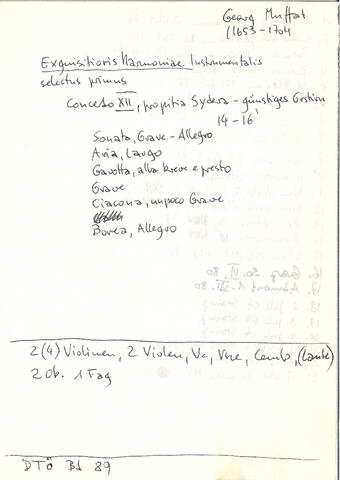 Georg Muffat
(1653-1704
Exquisitioris Harmoniae Instrumentalis
selectus primus
Concerto XII, propitia Sydera - günstiges Gestirn
14-16,
Sonata, Grave - Allegro
Aria, Largo
Gavotta, alla breve e presto
Grave
Ciacona, un poco Grave
Borea, Allegro
2(4) Violinen, 2 Violen, Vc, Vne, Cemb, (Laute)
2 Ob. 1 Fag
DTÖ Bd 89